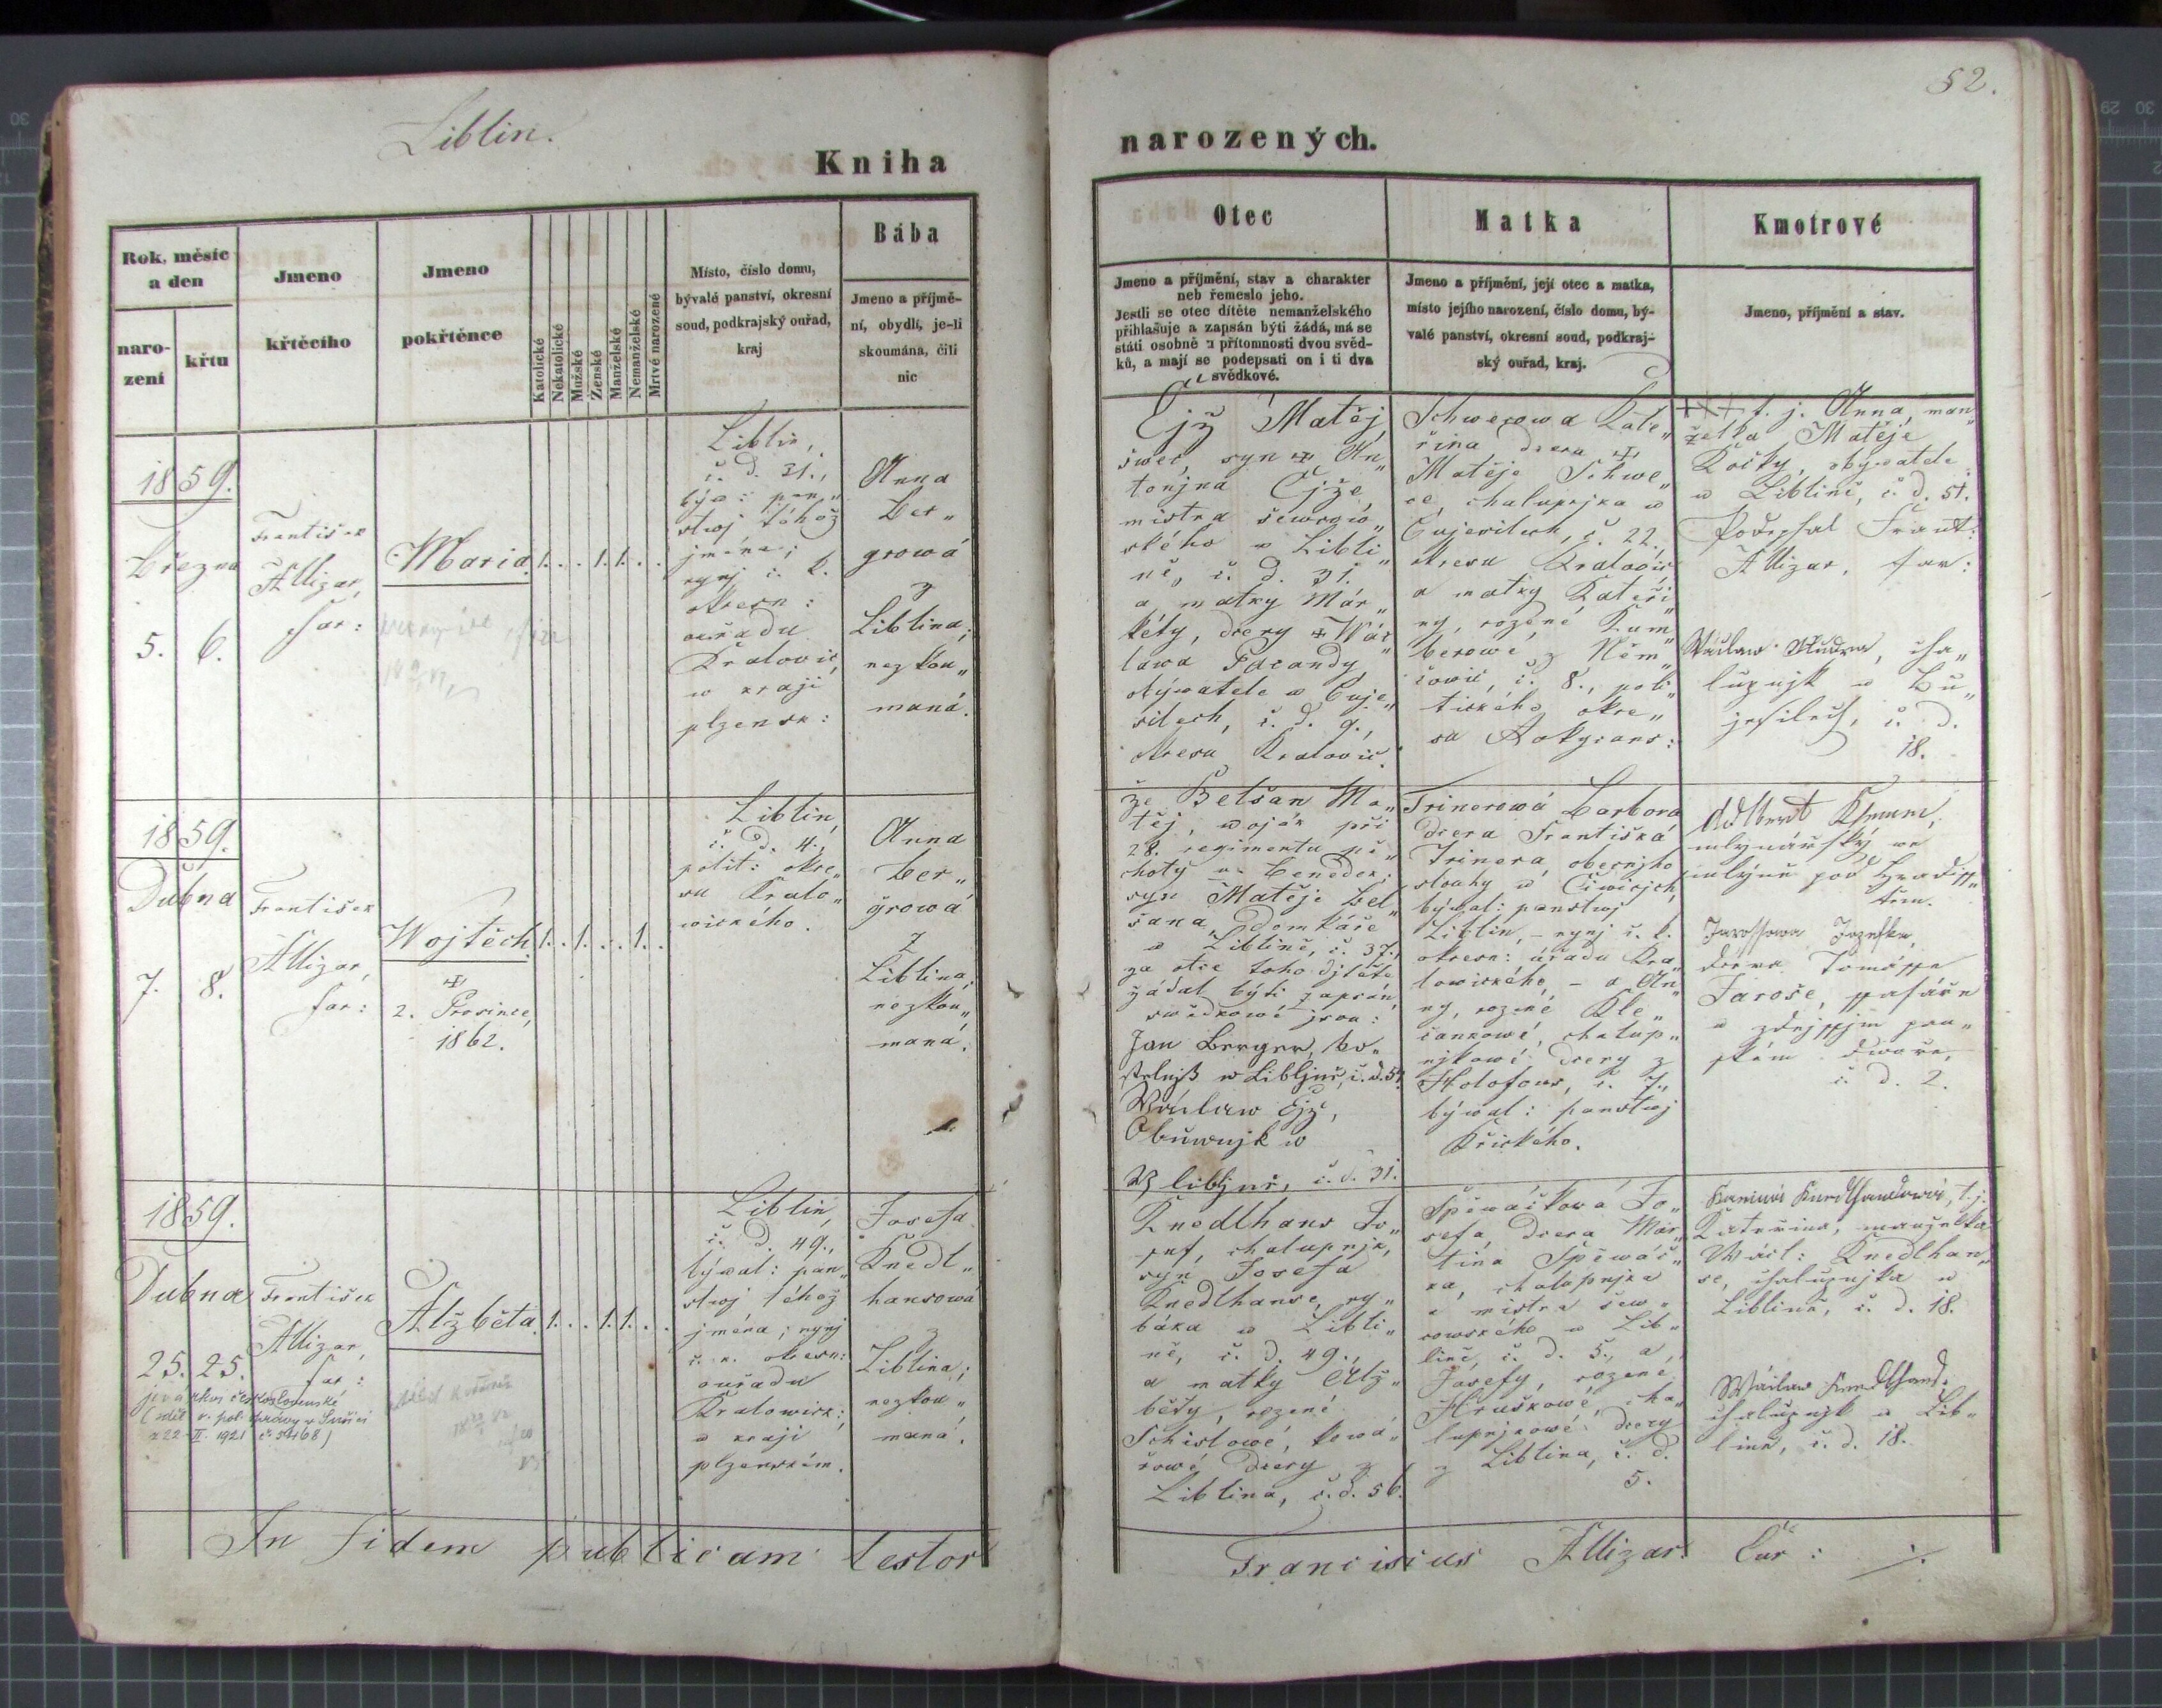 Liblin.
52.
Kniha
narozených.
Rok, měsíc
a den
naro-
zení
křtu
Jmeno
křtěcího
Jmeno
pokřtěnce
Katolické
Nekatolické
Mužské
Ženské
Manželské
Nemanželské
Mrtvé narozené
Místo, číslo domu,
bývalé panství, okresní
soud, podkrajský ouřad,
kraj
Bába
Jmeno a příjmě-
ní, obydlí, je-li
skoumána, čili
nic
Otec
Jmeno a příjmění, stav a charakter
neb řemeslo jeho.
Jestli se otec dítěte nemanželského
přihlašuje a zapsán býti žádá, má se
státi osobně v přítomnosti dvou svěd-
ků, a mají se podepsati on i ti dva
svědkové.
Matka
Jmeno a příjmění, její otec a matka,
místo jejího narození, číslo domu, bý-
valé panství, okresní soud, podkraj-
ský ouřad, kraj.
Kmotrové
Jmeno, příjmění a stav.
1859.
Března
5. 6.
František
Allizar,
far:
Maria.
1. . . 1. 1. . .
Liblin,
č. d. 31.,
býv: pan„
stwj téhož
jména;
nynj c. k.
okresn:
auřadu
Kralowic
w kraji
plzensk:
Anna
Ber„
growá
z
Liblina;
nezkou„
maná.
Ejž Matěj
šwec, syn ✠ An„
tonjna Ejže,
mistra šewcow„
ského w Libli„
ně, č. d. 31.
a matky Mar„
kéty, dcery ✠ Wác„
lawa Parandy,
obýwatele w Buje„
silech, č. d. 9.,
okresu Kralowic.
Schwerowa Kate„
řina dcera ✠
Matěje Schwe„
re, chalupnjka w
Bujesilech, č. 22.,
okresu Kralowic
a matky Kateři„
ny, rozené Kum„
berowé z Něm„
čowic, č. 8., poli„
tického okre„
su Rokycans:
+++ t. j. Anna, man„
želka Matěje
Kočky, obýwatele
w Liblině, č. d. 51.
Podepsal Frant:
Allizar, far:
Wáclaw Kudrna, cha„
lupnjk w Bu„
jesilech, č. d.
18.
1859.
Dubna
7. 8.
František
Allizar,
far:
Wojtěch.
✠
2. Prosince,
1862.
1. . 1. . . 1. .
Liblin,
č. d. 4.,
polit: okre„
su Kralo„
wického.
Anna
Ber„
growá
z
Liblina;
nezkou„
maná.
že Belšan Ma„
těj, woják při
28. regimentu pě„
choty n. Benedek,
syn Matěje Bel„
šana, domkáře
w Liblině, č. 37.,
za otce toho djtěte
žádal býti zapsán,
swědkowé jsou:
Jan Berger, ko„
stelnjk w Libljně, č. d. 57.
Wáclaw Ejž,
Obuwnjk w
W libljně, č. d. 31.
Trinerowá Barbora
dcera Františka
Trinera, obecnjho
slouhy w Čiwicjch,
býwal: panstwj
Liblin, – nynj c. k.
okresn: úřadu Kra„
lowického, – a An„
ny, rozené Kle„
čankowé, chalup„
njkowé dcery z
Holofaus, č. 7.,
býwal: panstwj
Křického.
Adlbert Klemm,
mlynářský we
mlýně pod Hradiss„
těm.
Jarossowa Jozefka,
dcera Tomásse
Jaroše, ssafáře
w zdejssjm pan„
ském dwoře,
č. d. 2.
1859.
Dubna
25. 25.
František
Allizar,
far:
Alžběta.
1. . . 1. 1. . .
Liblin,
č. d. 49.,
býwal: pan„
stwj téhož
jména; nynj
c. k. okresn:
ouřadu
Kralowick:
w kraji
plzenském.
Josefa
Knedl„
hansowá
z
Liblina;
nezkou„
maná.
Knedlhans Jo„
sef, chalupnjk,
syn Josefa
Knedlhanse, ry„
báka w Libli„
ně, č. d. 49.,
a matky Alž„
běty, rozené
Schislowé, kowá„
řowé dcery z
Liblina, č. d. 56.
Spěwáčkowá Jo„
sefa, dcera Mar„
tina Spěwáč„
ka, chalupnjka
a mistra šew„
cowského w Lib„
lině, č. d. 5., a
Josefy, rozené
Hruškowé, cha„
lupnjkowé dcery
z Liblina, č. d.
5.
Knedlhansowá, t. j.
Kateřina, manželka
Wácl: Knedlhan„
se, chalupnjka w
Liblině, č. d. 18.
Wáclaw Knedlhans.
chalupnjk w Lib„
lině, č. d. 18.
In fidem publicam testor
Franciscus Allizar. Cur: ./.